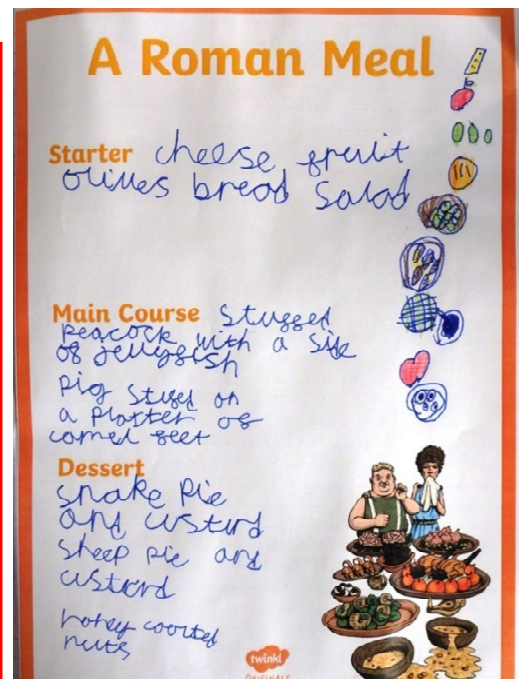 A Roman Meal
Starter cheese fruit
olives bread salad
Main Course Stugged
peacock with a side
of jellygish
pig stuged on
a platter of
camel feet
Dessert
snake pie
and custerd
sheep pie and
custard
honey coorted
nuts
twinkl
ORIGINALS